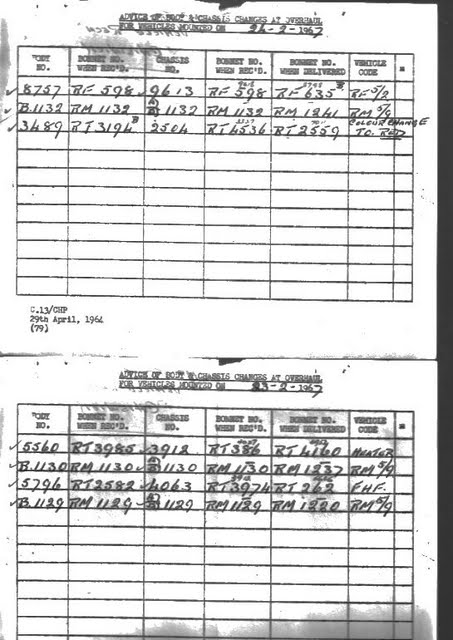 ADVICE OF BODY & CHASSIS CHANGES AT OVERHAUL
FOR VEHICLES MOUNTED ON 24-2-1967
BODY NO. BONNET NO. WHEN REC'D. CHASSIS NO. BONNET NO. WHEN REC'D. BONNET NO. WHEN DELIVERED VEHICLE CODE
8757 RF 598 9613 RF 598 RF 635 RF 5/2
B.1132 RM 1132 1132 RM 1132 RM 1241 RM 5/9
3489 RT3194 2504 RT4536 RT2559 COLOUR CHANGE TO RED
C.13/CHP
29th April, 1964
(79)
ADVICE OF BODY & CHASSIS CHANGES AT OVERHAUL
FOR VEHICLES MOUNTED ON 23-2-1967
BODY NO. BONNET NO. WHEN REC'D. CHASSIS NO. BONNET NO. WHEN REC'D. BONNET NO. WHEN DELIVERED VEHICLE CODE
5560 RT3985 3912 RT386 RT4160 HEATER
B.1130 RM 1130 1130 RM 1130 RM 1237 RM 5/9
5796 RT2582 4063 RT3974 RT 262 FHF.
B.1129 RM 1129 1129 RM 1129 RM 1220 RM 5/9